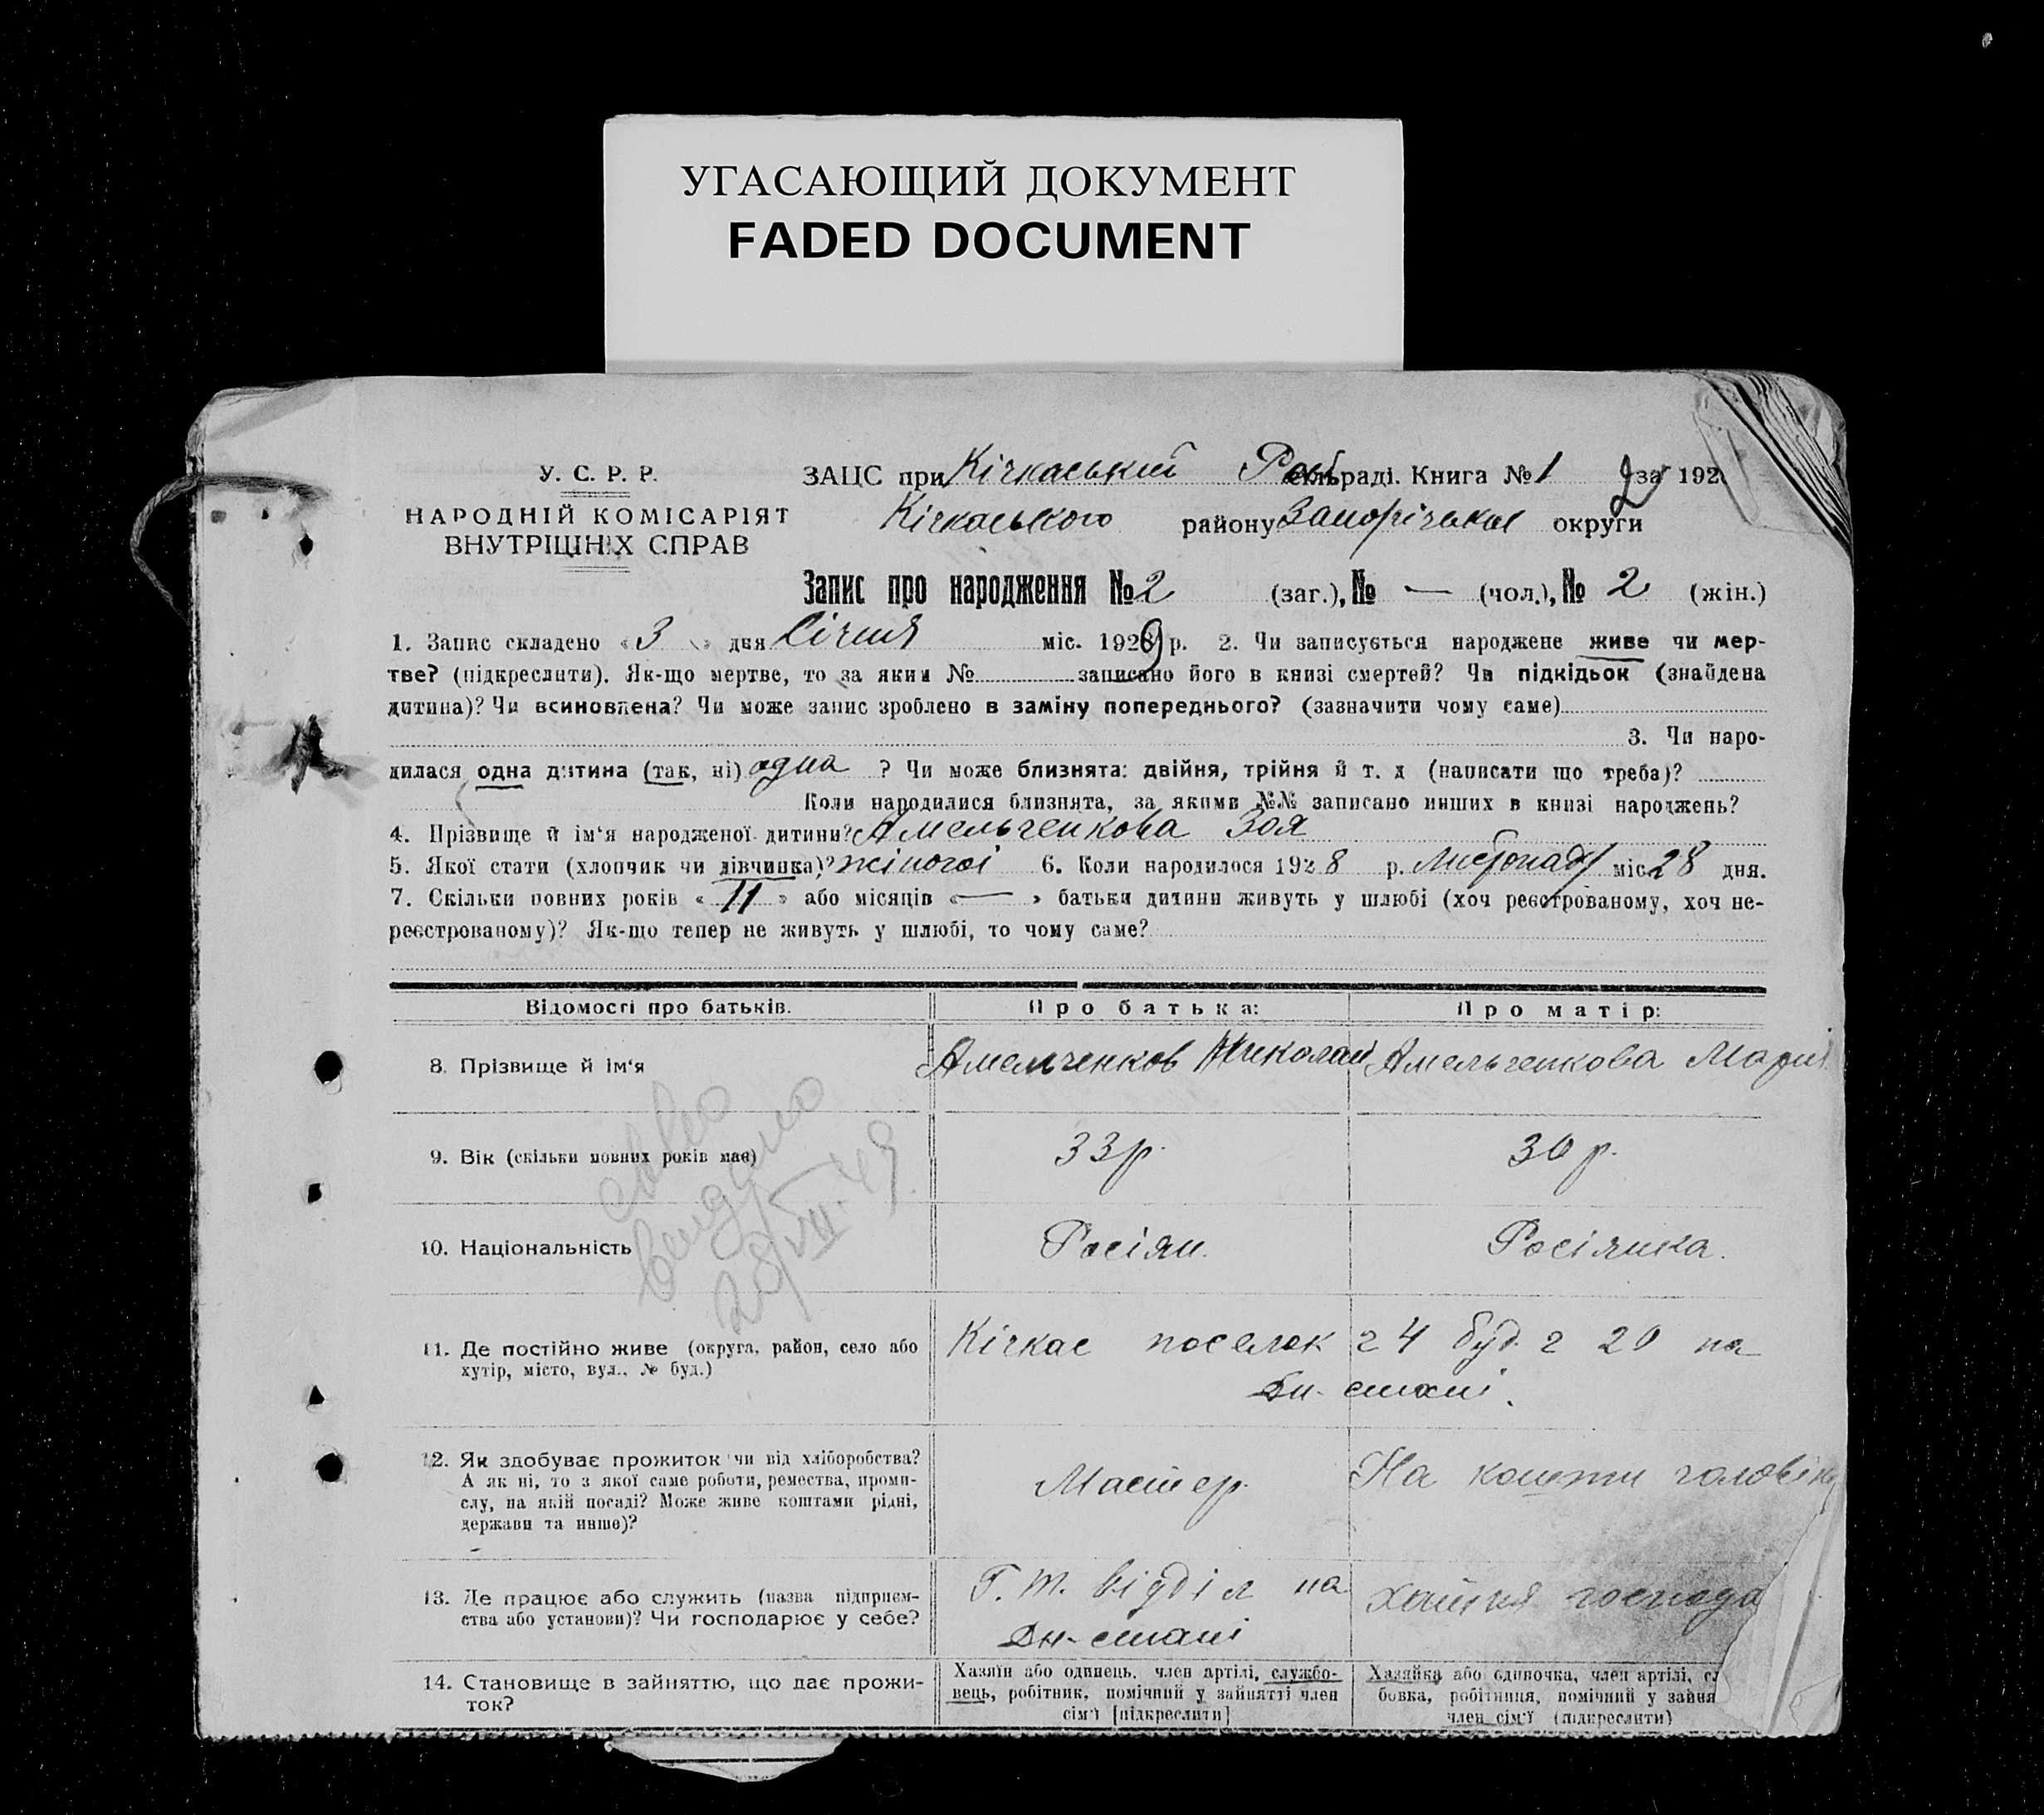 УГАСАЮЩИЙ ДОКУМЕНТ
FADED DOCUMENT
У. С. Р. Р.
НАРОДНІЙ КОМІСАРІЯТ
ВНУТРІШНІХ СПРАВ
ЗАЦС при Кічкаський раді. Книга № 1 за 192
Кічкаського району Запорізької округи
Запис про народження № 2 (заг.), № — (чол.), № 2 (жін.)
1. Запис складено « 3 » дня Січня міс. 1929 р. 2. Чи записується народжене живе чи мер-
тве? (підкреслити). Як-що мертве, то за яким № записано його в книзі смертей? Чи підкідьок (знайдена
дитина)? Чи всиновлена? Чи може запис зроблено в заміну попереднього? (зазначити чому саме)
3. Чи наро-
дилася одна дитина (так, ні) одна ? Чи може близнята: двійня, трійня й т. д (написати що треба)?
Коли народилися близнята, за якими №№ записано инших в книзі народжень?
4. Прізвище й ім'я народженої дитини? Амельченкова Зоя
5. Якої стати (хлопчик чи дівчинка)? жіночої 6. Коли народилося 1928 р. Листопаду міс 28 дня.
7. Скільки повних років « 11 » або місяців « — » батьки дитини живуть у шлюбі (хоч реєстрованому, хоч не-
реєстрованому)? Як-що тепер не живуть у шлюбі, то чому саме?
Відомості про батьків. Про батька: Про матір:
8. Прізвище й ім'я Амельченков Николай Амельченкова Мария
9. Вік (скільки повних років має) 33 р. 30 р.
10. Національність Росіян. Росіянка.
видано
28/VIII-49.
11. Де постійно живе (округа, район, село або
хутір, місто, вул., № буд.) Кічкас поселок ч 4 буд. ч 20 на
Дн-стані.
12. Як здобуває прожиток чи від хліборобства?
А як ні, то з якої саме роботи, ремества, проми-
слу, на якій посаді? Може живе коштами рідні,
держави та инше)? Мастер. На кошти чоловіка
13. Де працює або служить (назва підприєм-
ства або установи)? Чи господарює у себе? Г. Т. відділ на
Дн-стані
Хатня господа
14. Становище в зайняттю, що дає прожи-
ток?
Хазяїн або одинець, член артілі, службо-
вець, робітник, помічний у зайнятті член
сім'ї [підкреслити]
Хазяйка або одиночка, член артілі, сл
бовка, робітниця, помічний у зайня
член сім'ї (підкреслити)